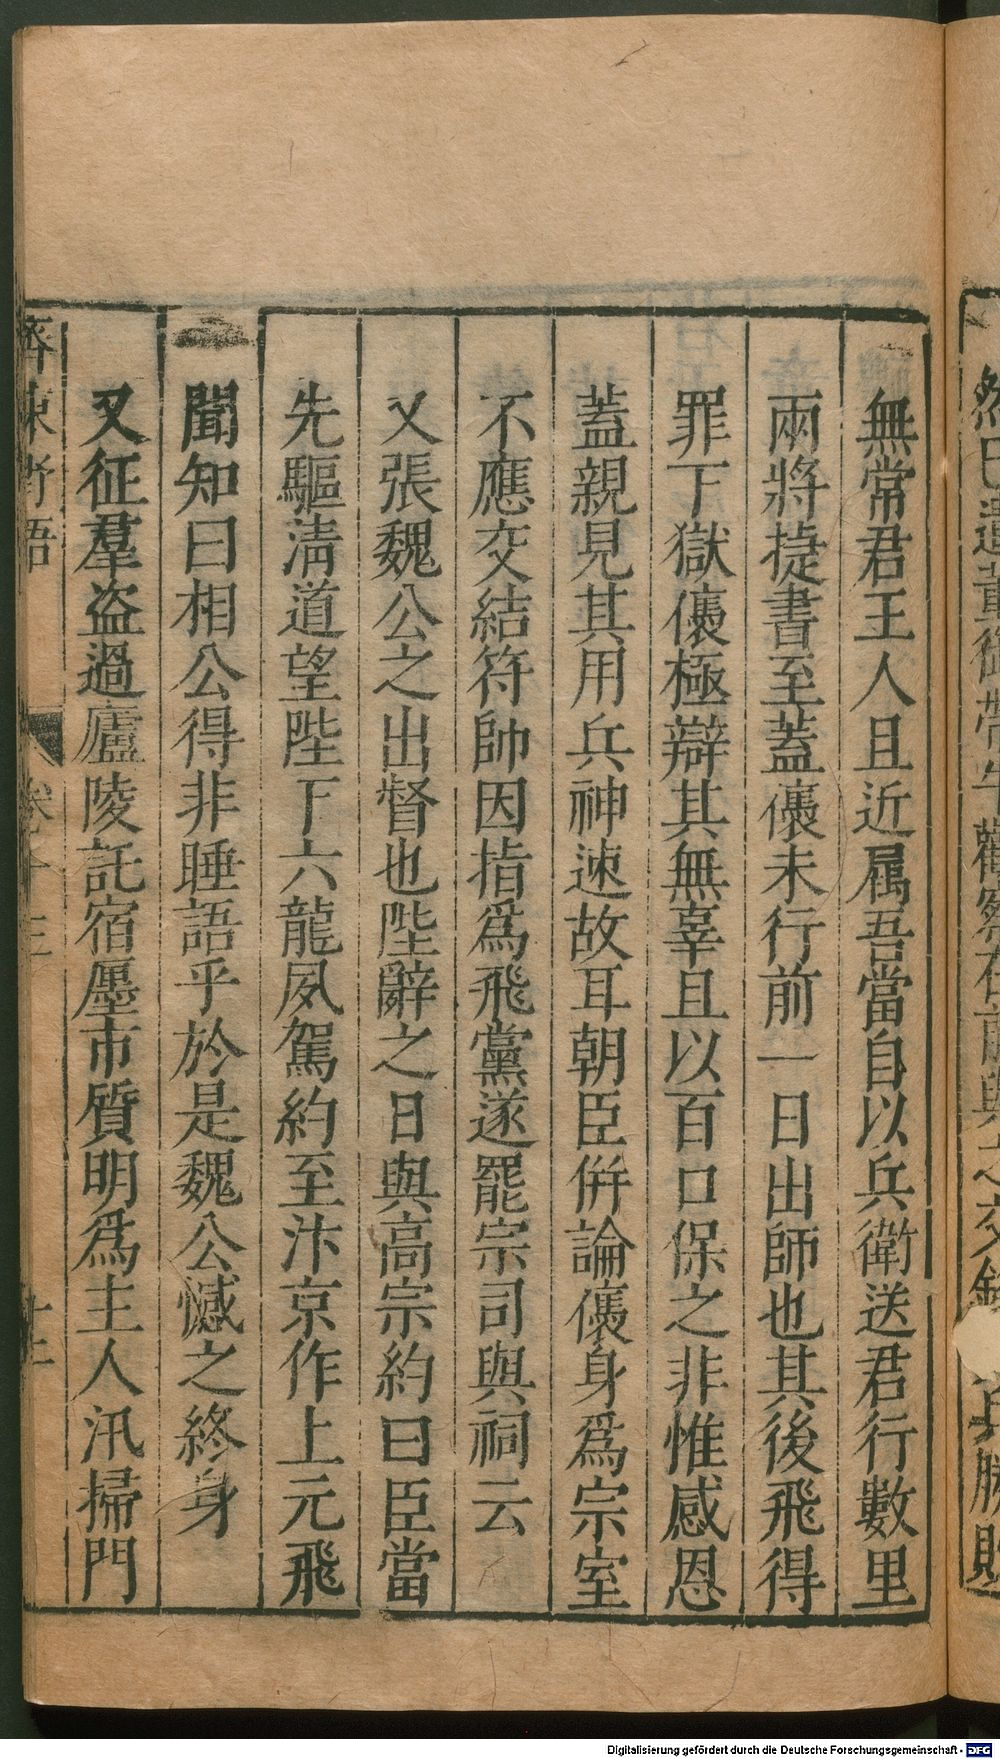 無常君王人且近屬吾當自以兵衛送君行數里
兩將捷書至蓋儴未行前一日出師也其後飛得
罪下獄儴極辯其無辜且以百口保之非惟感恩
蓋親見其用兵神速故耳朝臣併論儴身爲宗室
不應交結符帥因指爲飛黨遂罷宗司與祠云
又張魏公之出督也陛辭之日與高宗約曰臣當
先驅清道望陛下六龍夙駕約至汴京作上元飛
聞知曰相公得非睡語乎於是魏公憾之終身
又征羣盜過廬陵託宿廛市質明爲主人汛掃門
齊東野語 卷十三
Digitalisierung gefördert durch die Deutsche Forschungsgemeinschaft - DFG